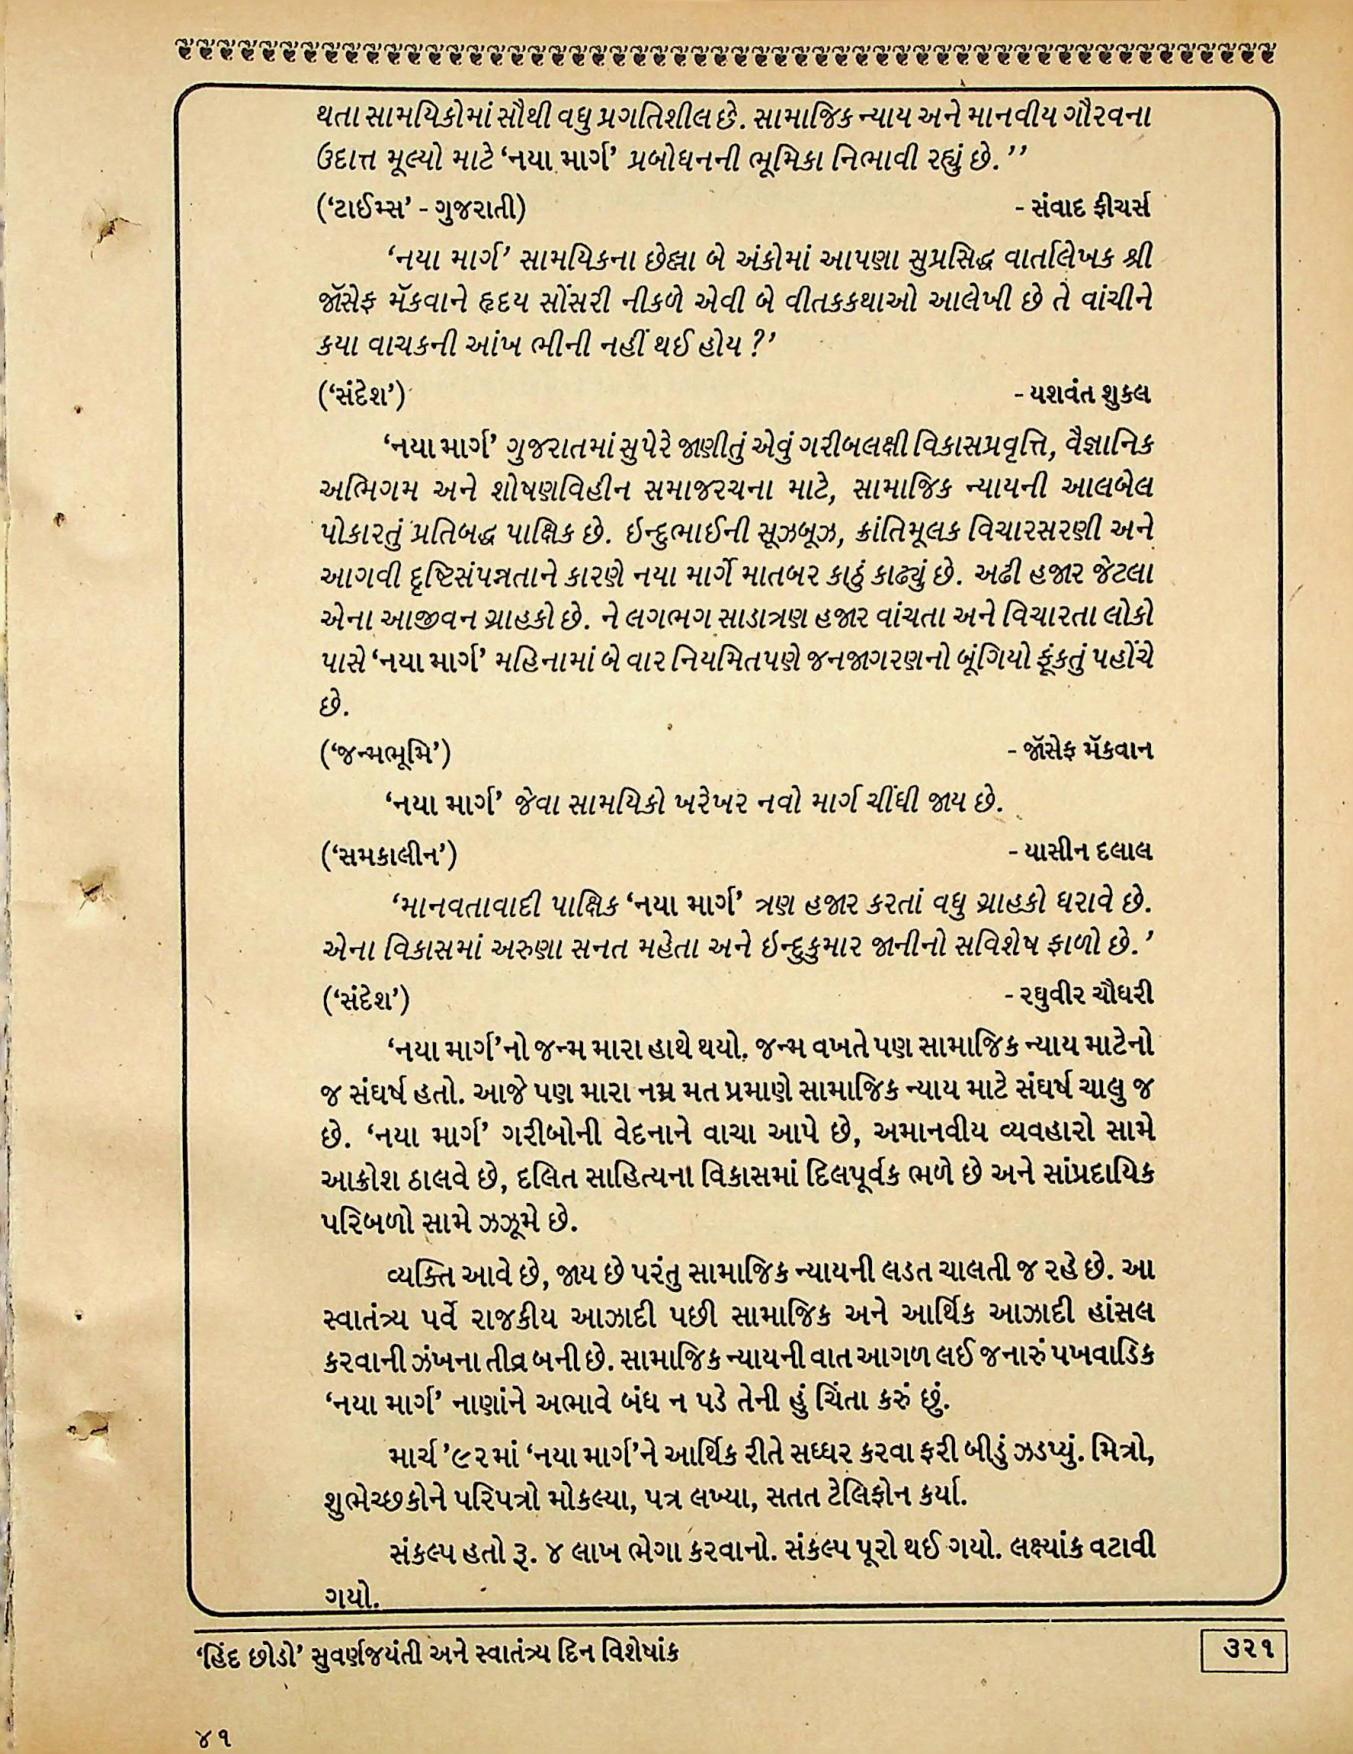 થતા સામયિકોમાં સૌથી વધુ પ્રગતિશીલ છે. સામાજિક ન્યાય અને માનવીય ગૌરવના
ઉદાત્ત મૂલ્યો માટે ‘નયા માર્ગ’ પ્રબોધનની ભૂમિકા નિભાવી રહ્યું છે.’’
(‘ટાઈમ્સ’ - ગુજરાતી) - સંવાદ ફીચર્સ
‘નયા માર્ગ’ સામયિકના છેલ્લા બે અંકોમાં આપણા સુપ્રસિદ્ધ વાર્તાલેખક શ્રી
જૉસેફ મૅકવાને હૃદય સોંસરી નીકળે એવી બે વીતકકથાઓ આલેખી છે તે વાંચીને
કયા વાચકની આંખ ભીની નહીં થઈ હોય ?’
(‘સંદેશ’) - યશવંત શુકલ
‘નયા માર્ગ’ ગુજરાતમાં સુપેરે જાણીતું એવું ગરીબલક્ષી વિકાસપ્રવૃત્તિ, વૈજ્ઞાનિક
અભિગમ અને શોષણવિહીન સમાજરચના માટે, સામાજિક ન્યાયની આલબેલ
પોકારતું પ્રતિબદ્ધ પાક્ષિક છે. ઇન્દુભાઈની સૂઝબૂઝ, ક્રાંતિમૂલક વિચારસરણી અને
આગવી દૃષ્ટિસંપન્નતાને કારણે નયા માર્ગે માતબર કાઠું કાઢ્યું છે. અઢી હજાર જેટલા
એના આજીવન ગ્રાહકો છે. ને લગભગ સાડાત્રણ હજાર વાંચતા અને વિચારતા લોકો
પાસે ‘નયા માર્ગ’ મહિનામાં બે વાર નિયમિતપણે જનજાગરણનો બૂંગિયો ફૂંકતું પહોંચે
છે.
(‘જન્મભૂમિ’) - જૉસેફ મૅકવાન
‘નયા માર્ગ’ જેવા સામયિકો ખરેખર નવો માર્ગ ચીંધી જાય છે.
(‘સમકાલીન’) - યાસીન દલાલ
‘માનવતાવાદી પાક્ષિક ‘નયા માર્ગ’ ત્રણ હજાર કરતાં વધુ ગ્રાહકો ધરાવે છે.
એના વિકાસમાં અરુણા સનત મહેતા અને ઇન્દુકુમાર જાનીનો સવિશેષ ફાળો છે.’
(‘સંદેશ’) - રઘુવીર ચૌધરી
‘નયા માર્ગ’નો જન્મ મારા હાથે થયો. જન્મ વખતે પણ સામાજિક ન્યાય માટેનો
જ સંઘર્ષ હતો. આજે પણ મારા નમ્ર મત પ્રમાણે સામાજિક ન્યાય માટે સંઘર્ષ ચાલુ જ
છે. ‘નયા માર્ગ’ ગરીબોની વેદનાને વાચા આપે છે, અમાનવીય વ્યવહારો સામે
આક્રોશ ઠાલવે છે, દલિત સાહિત્યના વિકાસમાં દિલપૂર્વક ભળે છે અને સાંપ્રદાયિક
પરિબળો સામે ઝઝૂમે છે.
વ્યક્તિ આવે છે, જાય છે પરંતુ સામાજિક ન્યાયની લડત ચાલતી જ રહે છે. આ
સ્વાતંત્ર્ય પર્વે રાજકીય આઝાદી પછી સામાજિક અને આર્થિક આઝાદી હાંસલ
કરવાની ઝંખના તીવ્ર બની છે. સામાજિક ન્યાયની વાત આગળ લઈ જનારું પખવાડિક
‘નયા માર્ગ’ નાણાંને અભાવે બંધ ન પડે તેની હું ચિંતા કરું છું.
માર્ચ ’૯૨માં ‘નયા માર્ગ’ને આર્થિક રીતે સધ્ધર કરવા ફરી બીડું ઝડપ્યું. મિત્રો,
શુભેચ્છકોને પરિપત્રો મોકલ્યા, પત્ર લખ્યા, સતત ટેલિફોન કર્યા.
સંકલ્પ હતો રૂ. ૪ લાખ ભેગા કરવાનો. સંકલ્પ પૂરો થઈ ગયો. લક્ષ્યાંક વટાવી
ગયો.
‘હિંદ છોડો’ સુવર્ણજયંતી અને સ્વાતંત્ર્ય દિન વિશેષાંક ૩૨૧
૪૧